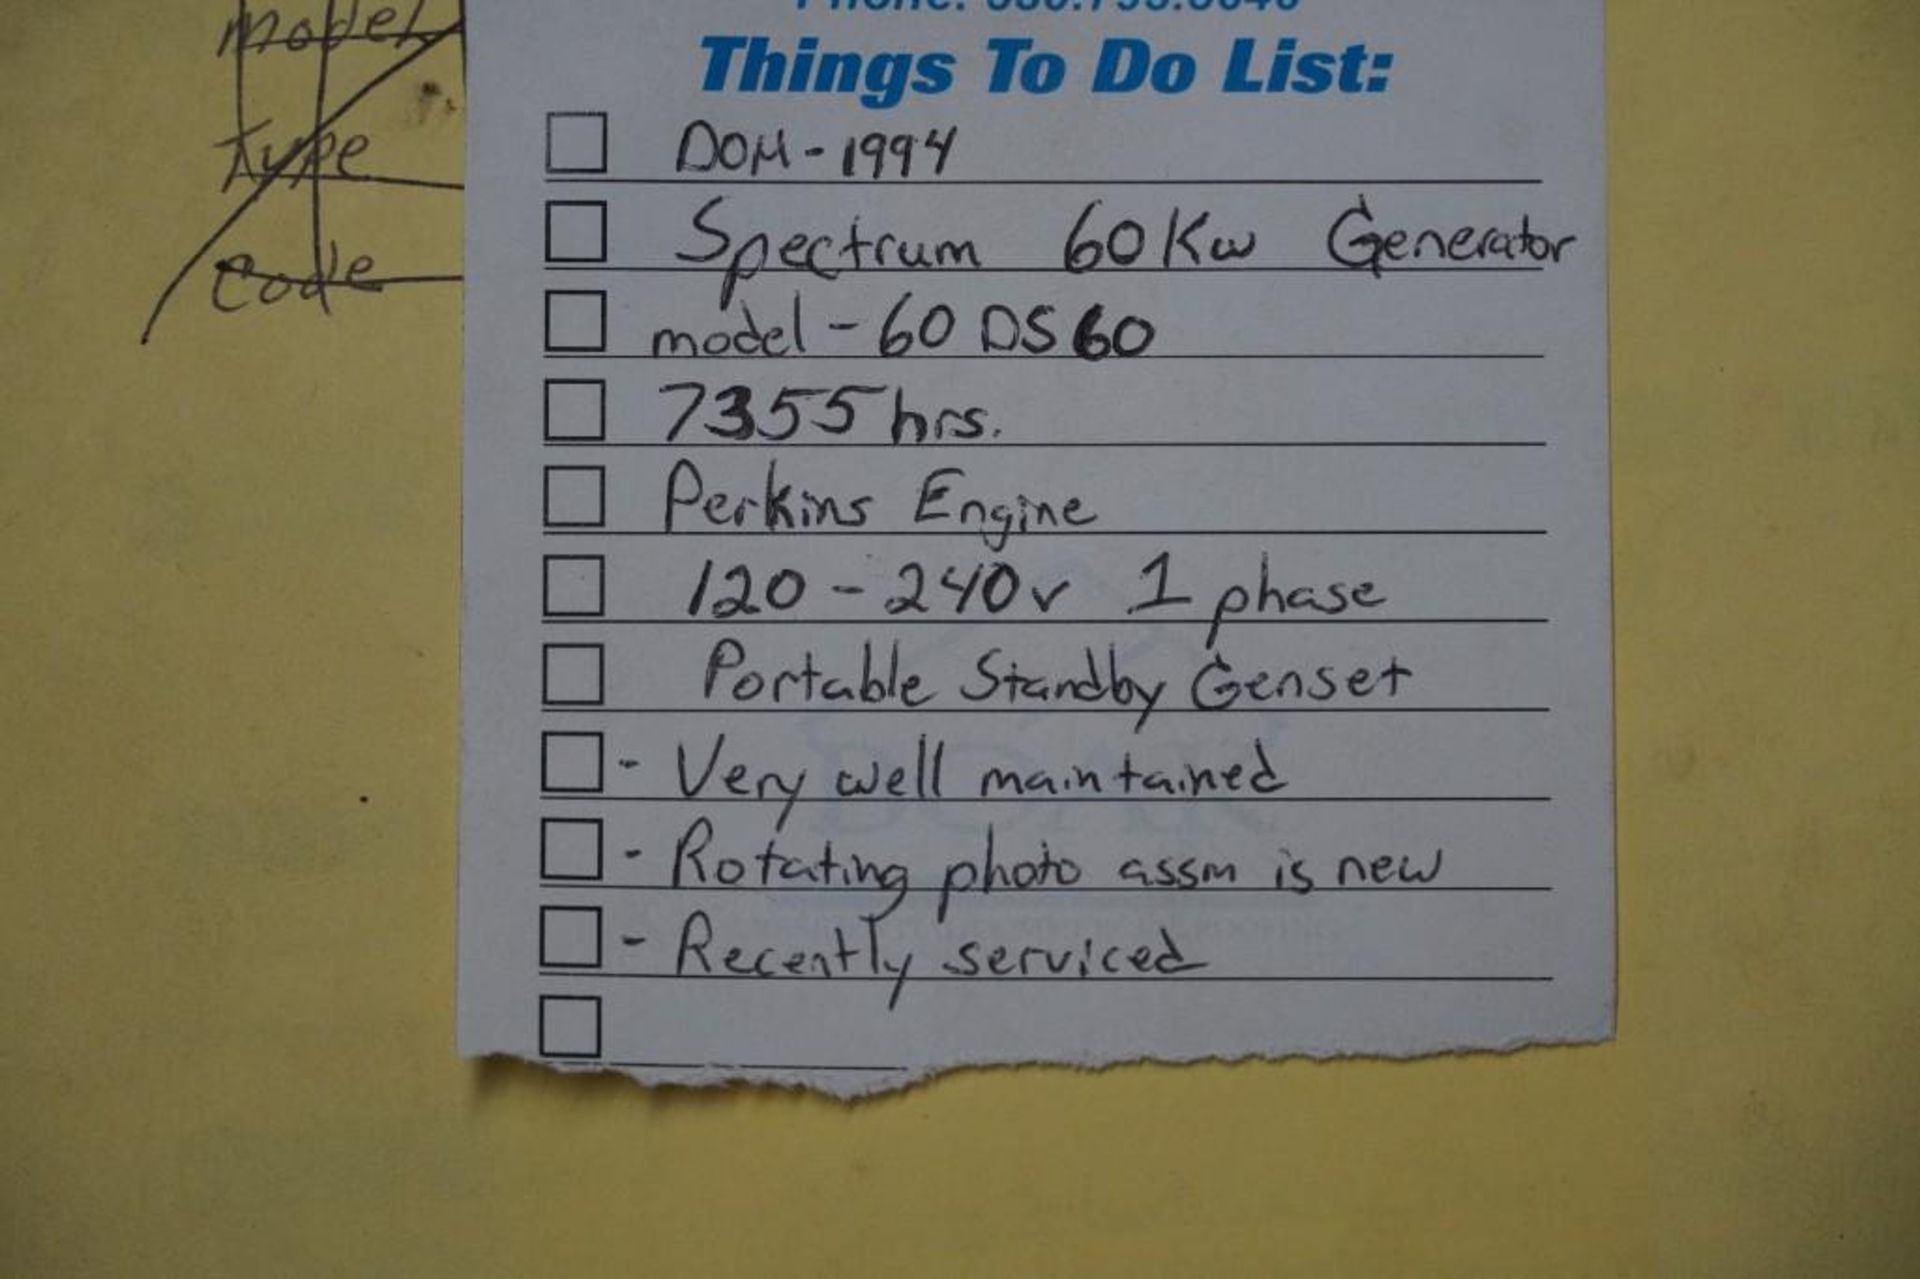 model
Type
Code
Things To Do List:
DOM - 1994
Spectrum 60 Kw Generator
model - 60 DS 60
7355 hrs.
Perkins Engine
120 - 240v 1 phase
Portable Standby Genset
- Very well maintained
- Rotating photo assm is new
- Recently serviced